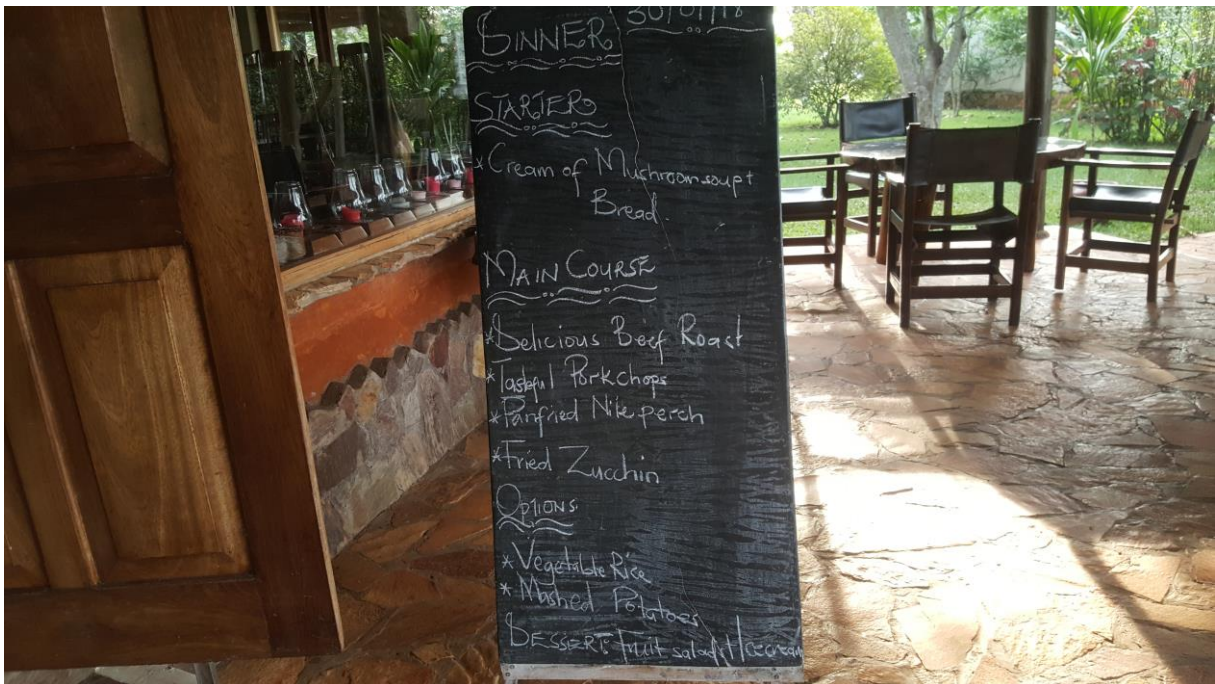 DINNER 30/01/18
STARTERS
*Cream of Mushroom soup +
Bread.
MAIN COURSE
*Delicious Beef Roast
*Tasteful Porkchops
*Panfried Nile perch
*Fried Zucchin
OPTIONS
*Vegetable Rice
*Mashed Potatoes
DESSERT: Fruit salad / Icecream